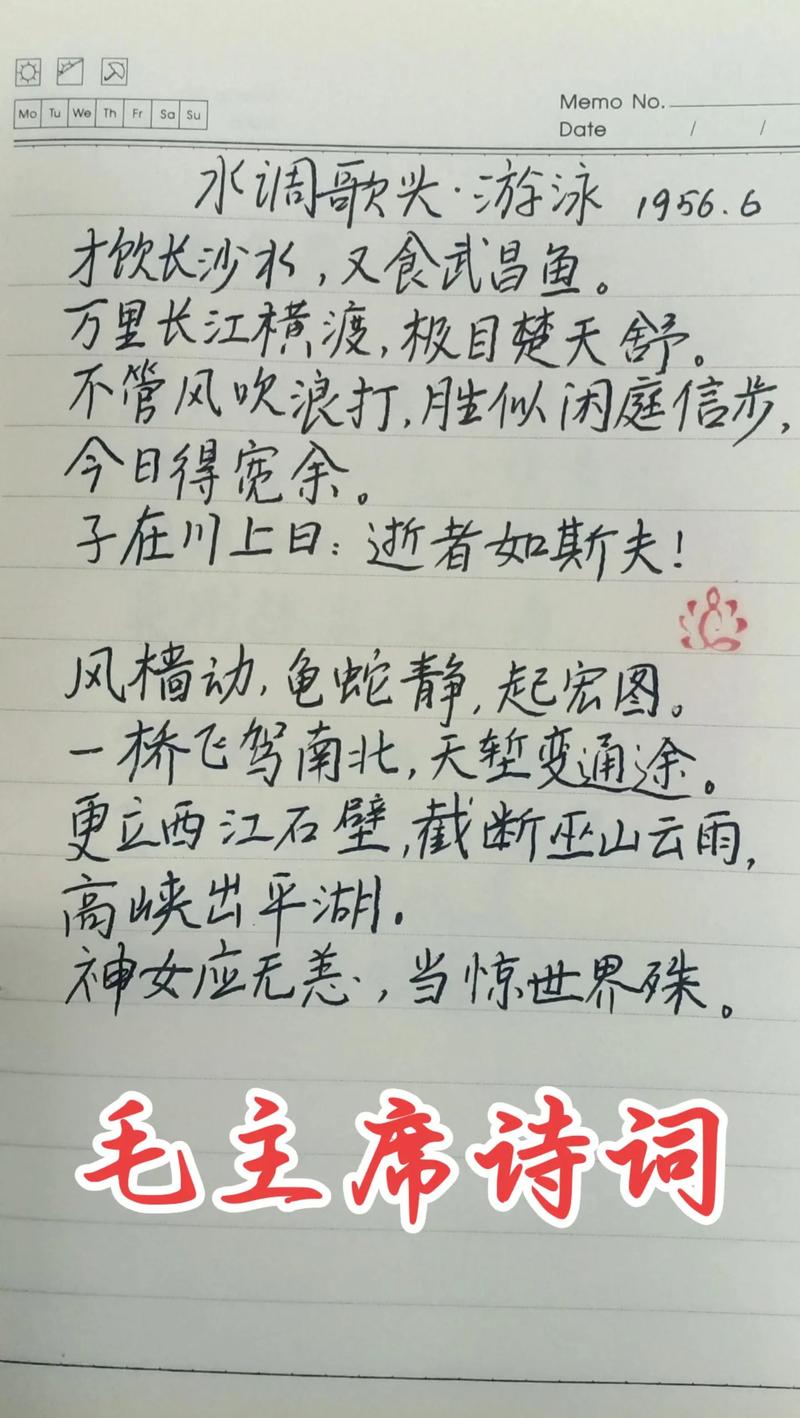 Mo Tu We Th Fr Sa Su
Memo No.
Date / /
水调歌头·游泳 1956.6
才饮长沙水,又食武昌鱼。
万里长江横渡,极目楚天舒。
不管风吹浪打,胜似闲庭信步,
今日得宽余。
子在川上曰:逝者如斯夫!
风樯动,龟蛇静,起宏图。
一桥飞驾南北,天堑变通途。
更立西江石壁,截断巫山云雨,
高峡出平湖.
神女应无恙,当惊世界殊。
毛主席诗词